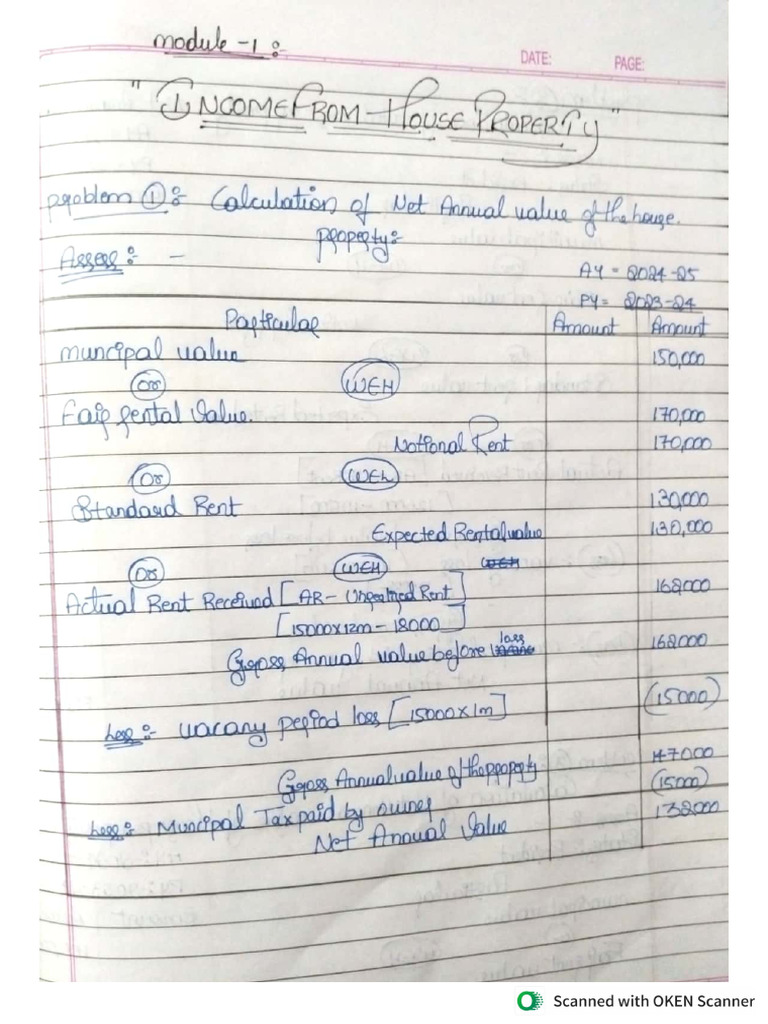 Module - 1 :-
DATE: PAGE:
" INCOME FROM HOUSE PROPERTY "
Problem ① :- Calculation of Net Annual value of the house
property :-
Assess :- -
AY = 2024-25
PY = 2023-24
Particular Amount Amount
muncipal value 150,000
Or WEH
Fair rental Value. 170,000
Notional Rent 170,000
Or WEL
Standard Rent 130,000
Expected Rental value 130,000
Or WEH WEH
Actual Rent Received [AR - Unrealized Rent] 162000
[15000x12m - 18000]
Gross Annual value before loss 162000
Less :- vacany period loss [15000x1m] (15000)
Gross Annual value of the property 147000
Less :- Muncipal Tax paid by owner (15000)
Net Annual Value 132000
Scanned with OKEN Scanner